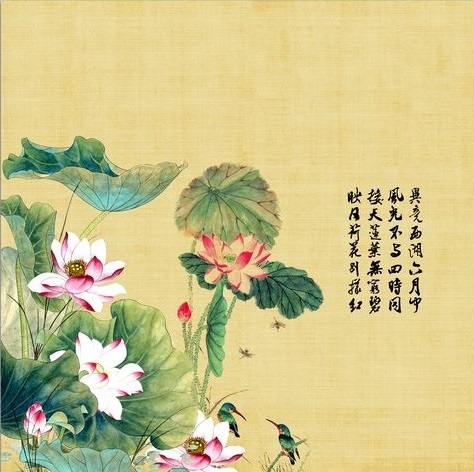 畢竟西湖六月中
風光不与四時同
接天蓮葉無窮碧
映日荷花别樣红